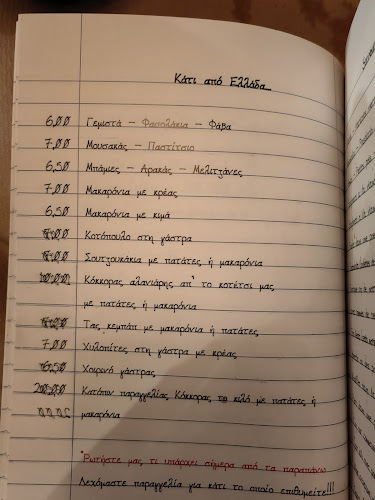 Κάτι από Ελλάδα...
6,00 Γεμιστά – Φασολάκια – Φάβα
7,00 Μουσακάς – Παστίτσιο
6,50 Μπάμιες – Αρακάς – Μελιτζάνες
7,00 Μακαρόνια με κρέας
6,50 Μακαρόνια με κιμά
Κοτόπουλο στη γάστρα
Σουτζουκάκια με πατάτες ή μακαρόνια
Κόκκορας αλανιάρης απ' το κοτέτσι μας
με πατάτες ή μακαρόνια
Τας κεμπάπ με μακαρόνια ή πατάτες
7,00 Χυλοπίτες στη γάστρα με κρέας
Χοιρινό γάστρας
Κατόπιν παραγγελίας Κόκκορας το κιλό με πατάτες ή
μακαρόνια
*Ρωτήστε μας τι υπάρχει σήμερα από τα παραπάνω
Δεχόμαστε παραγγελία για κάτι το οποίο επιθυμείτε!!!